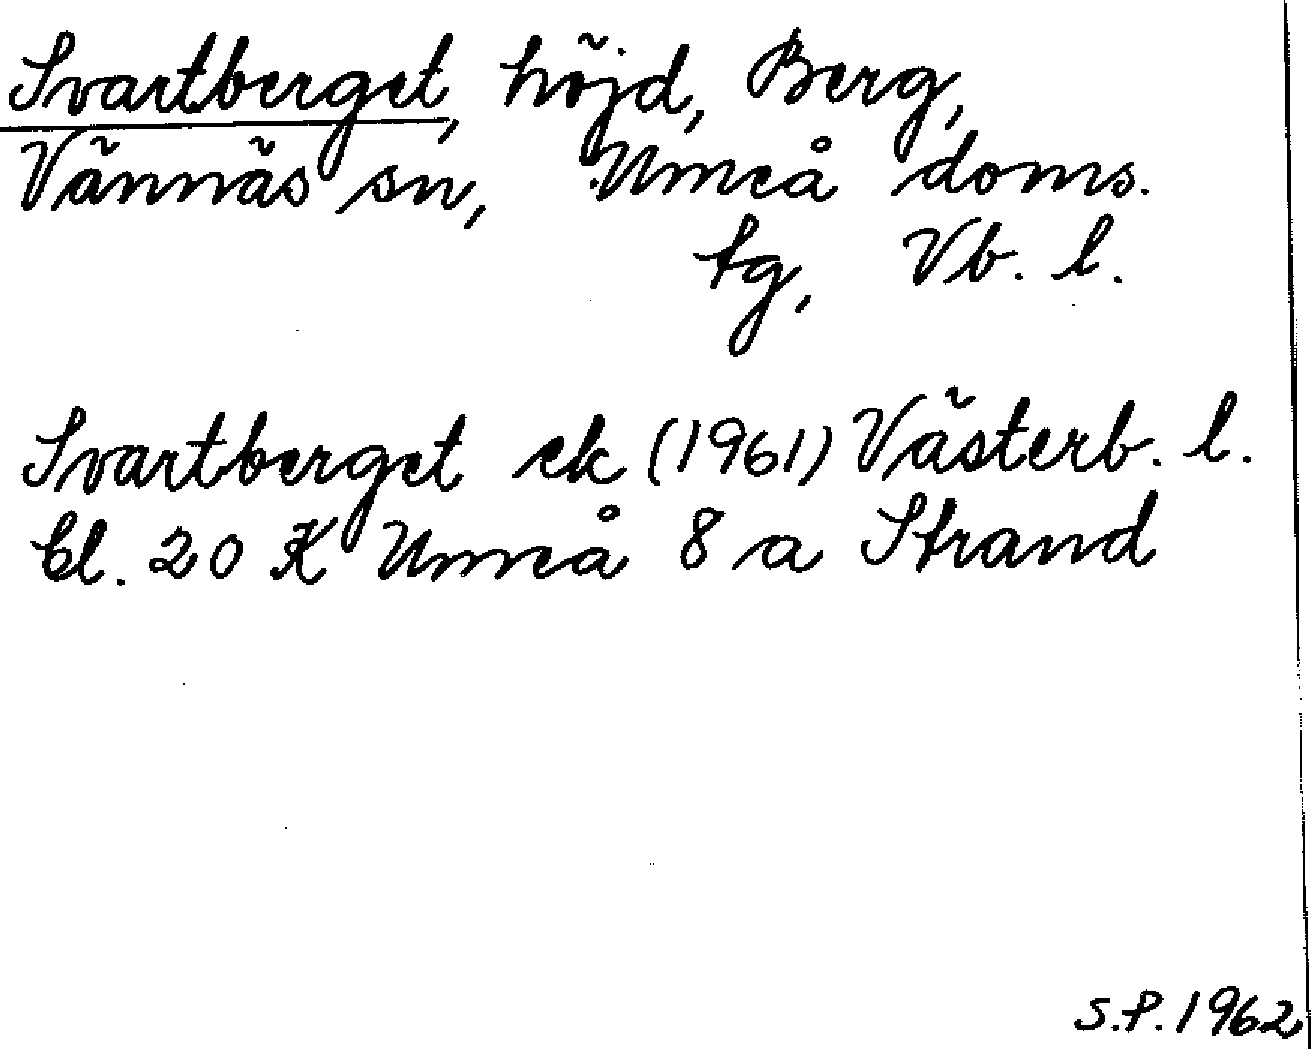 Svartberget, höjd, Berg,
Vännäs sn, Umeå doms.
tg, Vb. l.
Svartberget ek (1961) Västerb. l.
bl. 20 K Umeå 8 a Strand
S.P. 1962